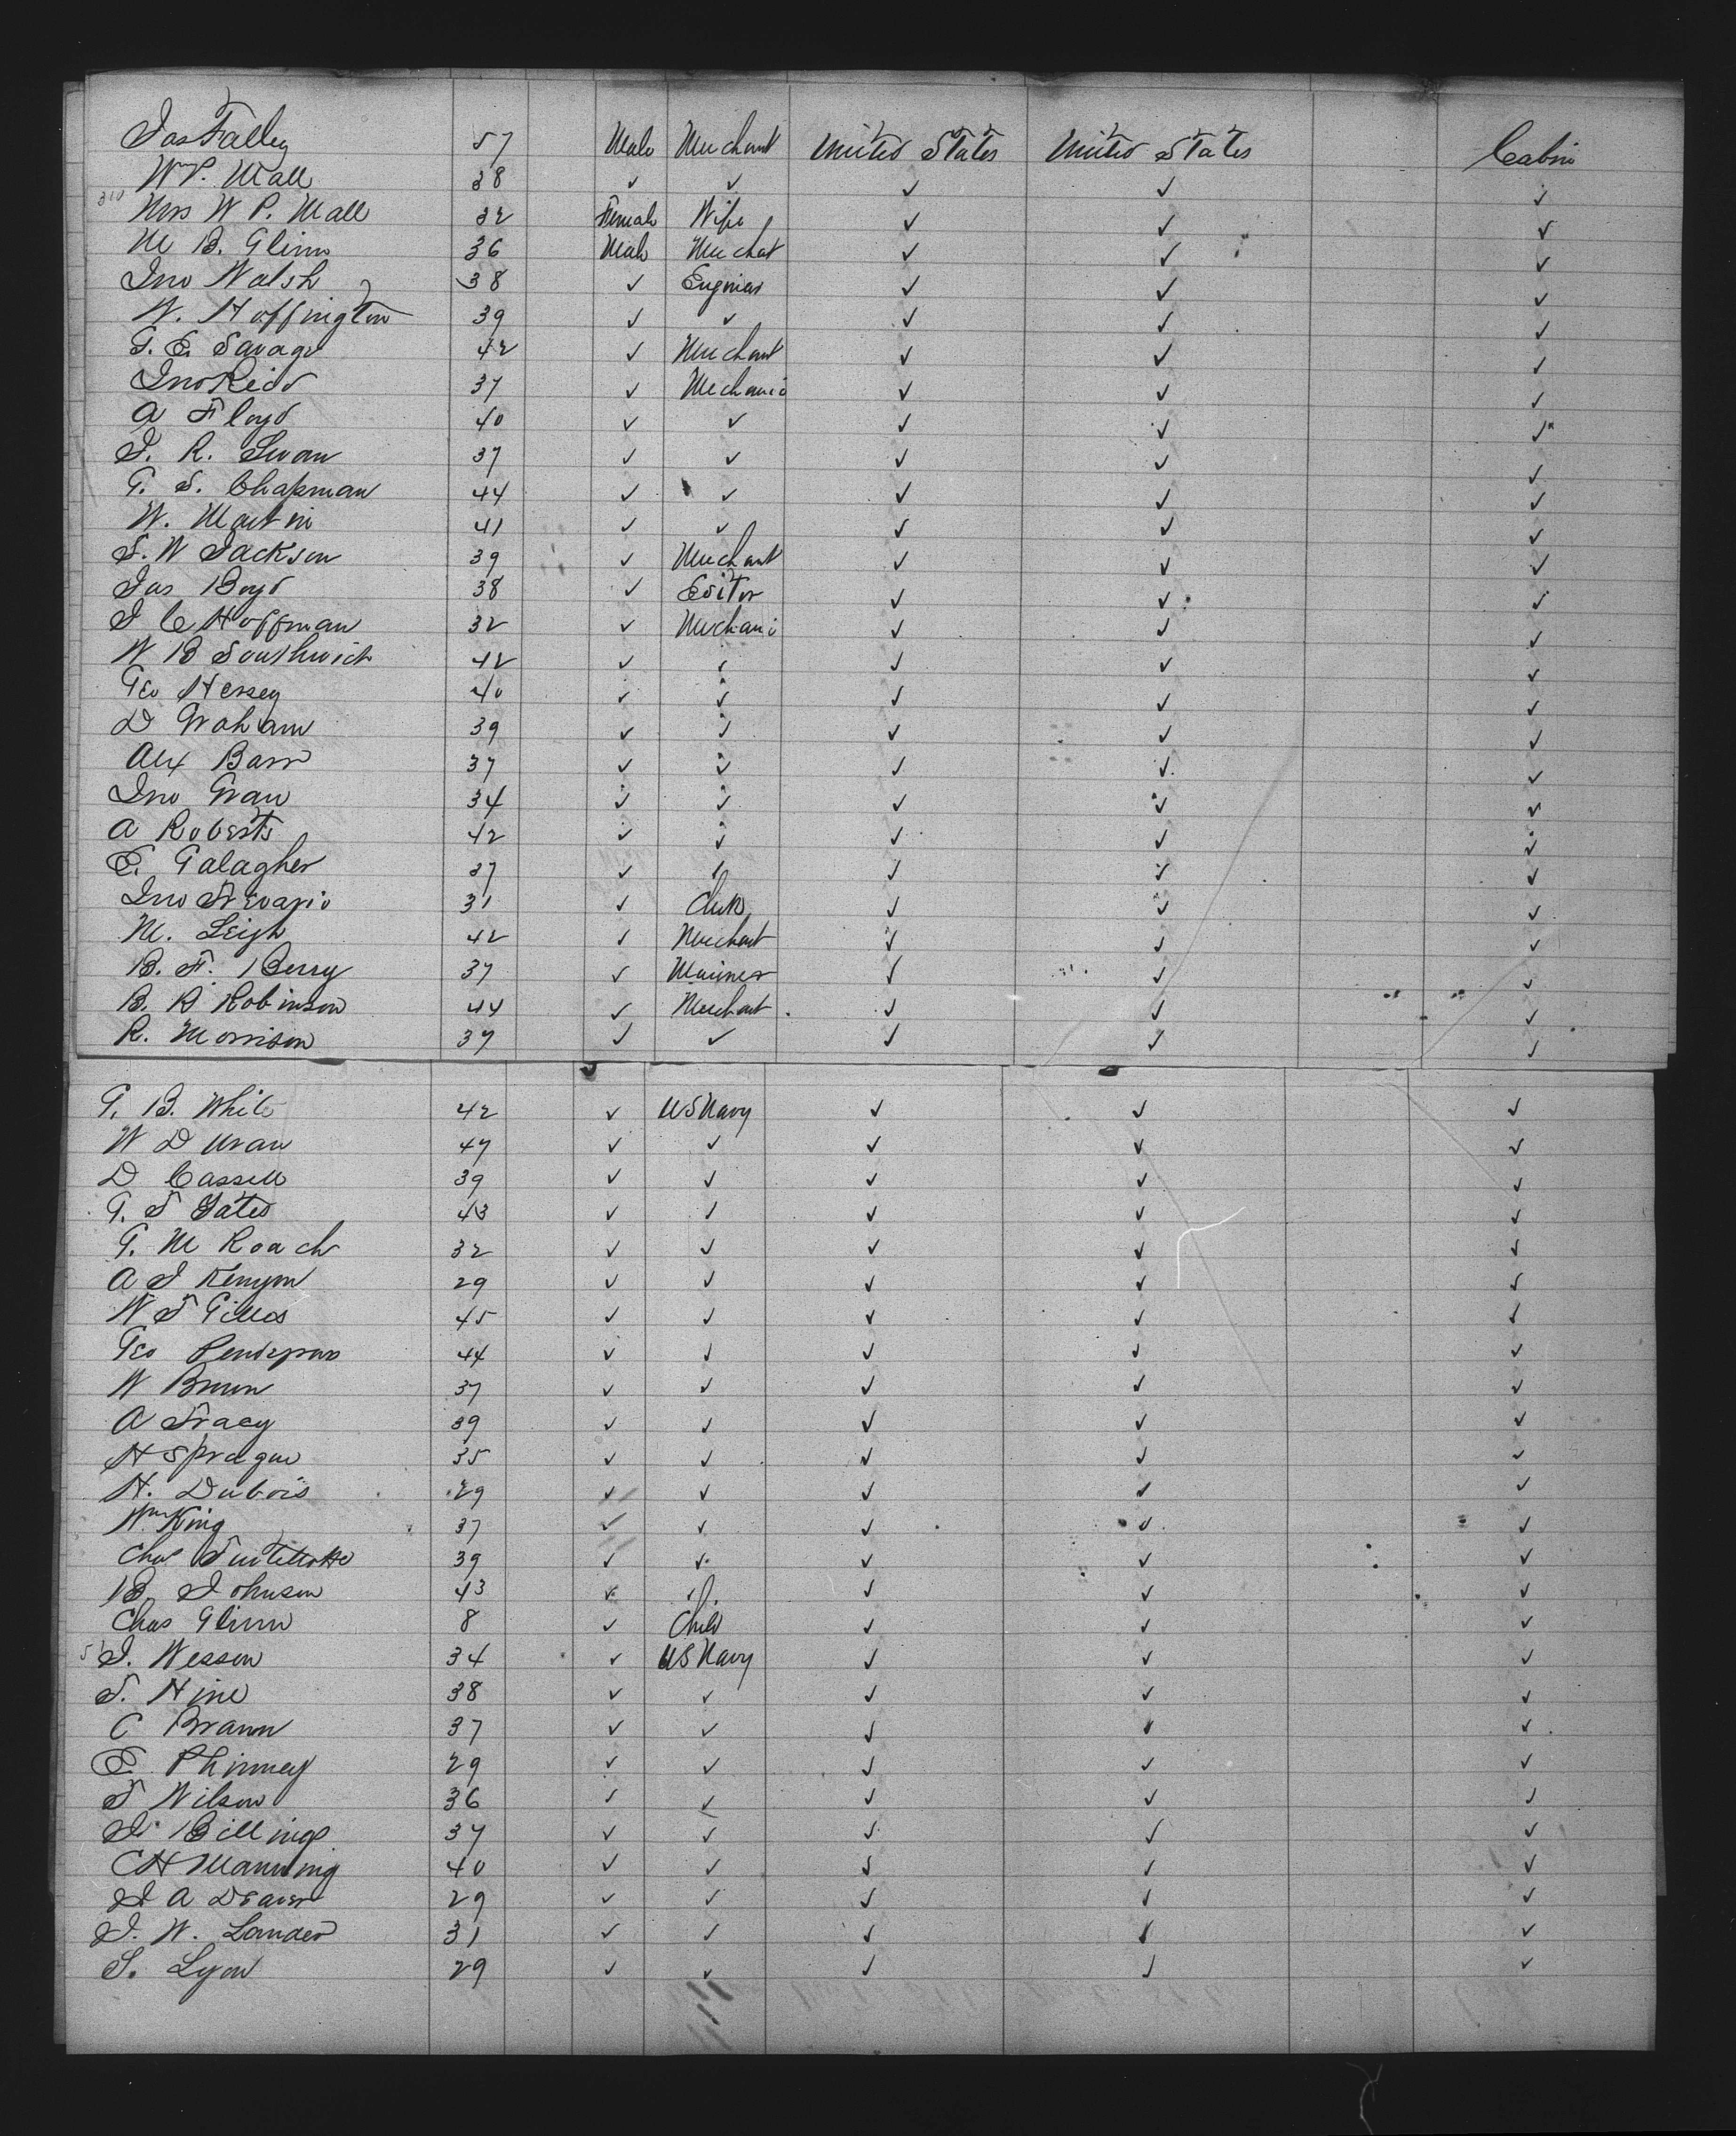 Jas Talley 57 Male Merchant United States United States Cabin
Wm P. Wall 38 ✓ ✓ ✓ ✓ ✓
Mrs W P. Wall 32 Female Wife ✓ ✓ ✓
M B. Glinn 36 Male Merchat ✓ ✓ ✓
Jno Walsh 38 ✓ Engineer ✓ ✓ ✓
W. Hoffington 39 ✓ ✓ ✓ ✓ ✓
G. E. Savage 42 ✓ Merchant ✓ ✓ ✓
Jno Reid 37 ✓ Mechanic ✓ ✓ ✓
A Floyd 40 ✓ ✓ ✓ ✓ ✓
J. R. Swan 37 ✓ ✓ ✓ ✓ ✓
G. S. Chapman 44 ✓ ✓ ✓ ✓ ✓
W. Martin 41 ✓ ✓ ✓ ✓ ✓
S. W Jackson 39 ✓ Merchant ✓ ✓ ✓
Jas Boyd 38 ✓ Editor ✓ ✓ ✓
J C Hoffman 32 ✓ Mechani ✓ ✓ ✓
W B Southwick 42 ✓ ✓ ✓ ✓ ✓
Geo Hersey 40 ✓ ✓ ✓ ✓ ✓
D Graham 39 ✓ ✓ ✓ ✓ ✓
Alex Barr 37 ✓ ✓ ✓ ✓ ✓
Jno Grau 34 ✓ ✓ ✓ ✓ ✓
A Roberts 42 ✓ ✓ ✓ ✓ ✓
E. Galagher 37 ✓ ✓ ✓ ✓ ✓
Jno 31 ✓ Clerk ✓ ✓ ✓
M. Leigh 42 ✓ Merchant ✓ ✓ ✓
B. F. Berry 37 ✓ Mariner ✓ ✓ ✓
B. R Robinson 44 ✓ Merchant ✓ ✓ ✓
R. Morrison 37 ✓ ✓ ✓ ✓ ✓
G. B. White 42 ✓ US Navy ✓ ✓ ✓
W D 47 ✓ ✓ ✓ ✓ ✓
D Cassell 39 ✓ ✓ ✓ ✓ ✓
G. T Yates 43 ✓ ✓ ✓ ✓ ✓
G. M Roach 32 ✓ ✓ ✓ ✓ ✓
A J Kenyon 29 ✓ ✓ ✓ ✓ ✓
W T Gilles 45 ✓ ✓ ✓ ✓ ✓
Geo 44 ✓ ✓ ✓ ✓ ✓
W Brown 37 ✓ ✓ ✓ ✓ ✓
A Tracy 39 ✓ ✓ ✓ ✓ ✓
H Sprague 35 ✓ ✓ ✓ ✓ ✓
H. Dubois 29 ✓ ✓ ✓ ✓ ✓
Wm King 37 ✓ ✓ ✓ ✓ ✓
Chas 39 ✓ ✓ ✓ ✓ ✓
B. Johnson 43 ✓ ✓ ✓ ✓ ✓
Chas Glinn 8 ✓ Child ✓ ✓ ✓
J. Wesson 34 ✓ US Navy ✓ ✓ ✓
T. Hine 38 ✓ ✓ ✓ ✓ ✓
C Brann 37 ✓ ✓ ✓ ✓ ✓
E. Phinney 29 ✓ ✓ ✓ ✓ ✓
T Wilson 36 ✓ ✓ ✓ ✓ ✓
J. Billings 37 ✓ ✓ ✓ ✓ ✓
C H Manning 40 ✓ ✓ ✓ ✓ ✓
J A Deaver 29 ✓ ✓ ✓ ✓ ✓
J. W. Lander 31 ✓ ✓ ✓ ✓ ✓
S. Lyon 29 ✓ ✓ ✓ ✓ ✓